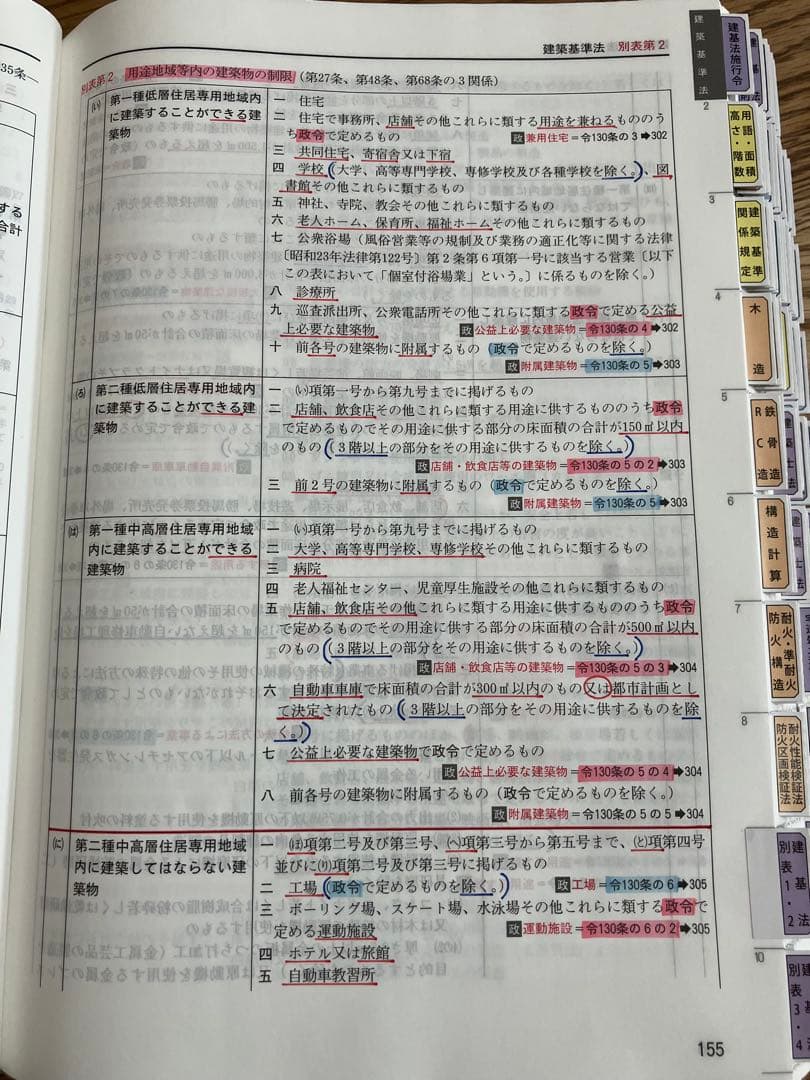 35条—
建築基準法　別表第2
別表第2　用途地域等内の建築物の制限（第27条、第48条、第68条の3関係）
(い)　第一種低層住居専用地域内に建築することができる建築物
一　住宅
二　住宅で事務所、店舗その他これらに類する用途を兼ねるもののう
ち政令で定めるもの　政兼用住宅＝令130条の3➡302
三　共同住宅、寄宿舎又は下宿
四　学校（大学、高等専門学校、専修学校及び各種学校を除く。）、図
書館その他これらに類するもの
五　神社、寺院、教会その他これらに類するもの
六　老人ホーム、保育所、福祉ホームその他これらに類するもの
七　公衆浴場（風俗営業等の規制及び業務の適正化等に関する法律
〔昭和23年法律第122号〕第2条第6項第一号に該当する営業〔以下
この表において「個室付浴場業」という。〕に係るものを除く。）
八　診療所
九　巡査派出所、公衆電話所その他これらに類する政令で定める公益
上必要な建築物　政公益上必要な建築物＝令130条の4➡302
十　前各号の建築物に附属するもの（政令で定めるものを除く。）
政附属建築物＝令130条の5➡303
(ろ)　第二種低層住居専用地域内に建築することができる建築物
一　(い)項第一号から第九号までに掲げるもの
二　店舗、飲食店その他これらに類する用途に供するもののうち政令
で定めるものでその用途に供する部分の床面積の合計が150㎡以内
のもの（3階以上の部分をその用途に供するものを除く。）
政店舗・飲食店等の建築物＝令130条の5の2➡303
三　前2号の建築物に附属するもの（政令で定めるものを除く。）
政附属建築物＝令130条の5➡303
(は)　第一種中高層住居専用地域内に建築することができる建築物
一　(い)項第一号から第九号までに掲げるもの
二　大学、高等専門学校、専修学校その他これらに類するもの
三　病院
四　老人福祉センター、児童厚生施設その他これらに類するもの
五　店舗、飲食店その他これらに類する用途に供するもののうち政令
で定めるものでその用途に供する部分の床面積の合計が500㎡以内
のもの（3階以上の部分をその用途に供するものを除く。）
政店舗・飲食店等の建築物＝令130条の5の3➡304
六　自動車車庫で床面積の合計が300㎡以内のもの又は都市計画とし
て決定されたもの（3階以上の部分をその用途に供するものを除
く。）
七　公益上必要な建築物で政令で定めるもの
政公益上必要な建築物＝令130条の5の4➡304
八　前各号の建築物に附属するもの（政令で定めるものを除く。）
政附属建築物＝令130条の5の5➡304
(に)　第二種中高層住居専用地域内に建築してはならない建築物
一　(ほ)項第二号及び第三号、(へ)項第三号から第五号まで、(と)項第四号
並びに(り)項第二号及び第三号に掲げるもの
二　工場（政令で定めるものを除く。）　政工場＝令130条の6➡305
三　ボーリング場、スケート場、水泳場その他これらに類する政令で
定める運動施設　政運動施設＝令130条の6の2➡305
四　ホテル又は旅館
五　自動車教習所
155
建築基準法
建基法施行令
2
用語・面積
高さ・階数
3
建築基準
関係規定
4
木造
5
鉄骨造
RC造
6
構造計算
7
耐火・準耐火
防火構造
8
耐火性能検証法
防火区画検証法
別表1・2
建基法
10
別表3・4
建基